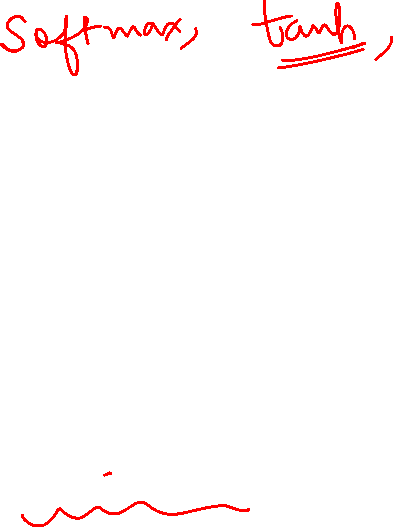 softmax, tanh,